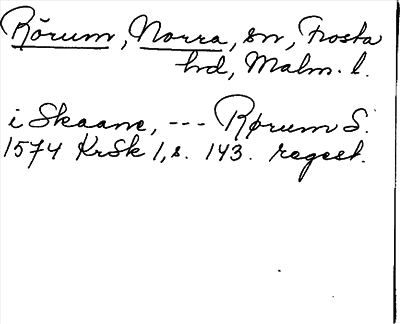 Rörum, Norra, sn, Frosta
hd, Malm. l.
i Skaane, --- Rørum S.
1574 KrSk 1, s. 143. regest.